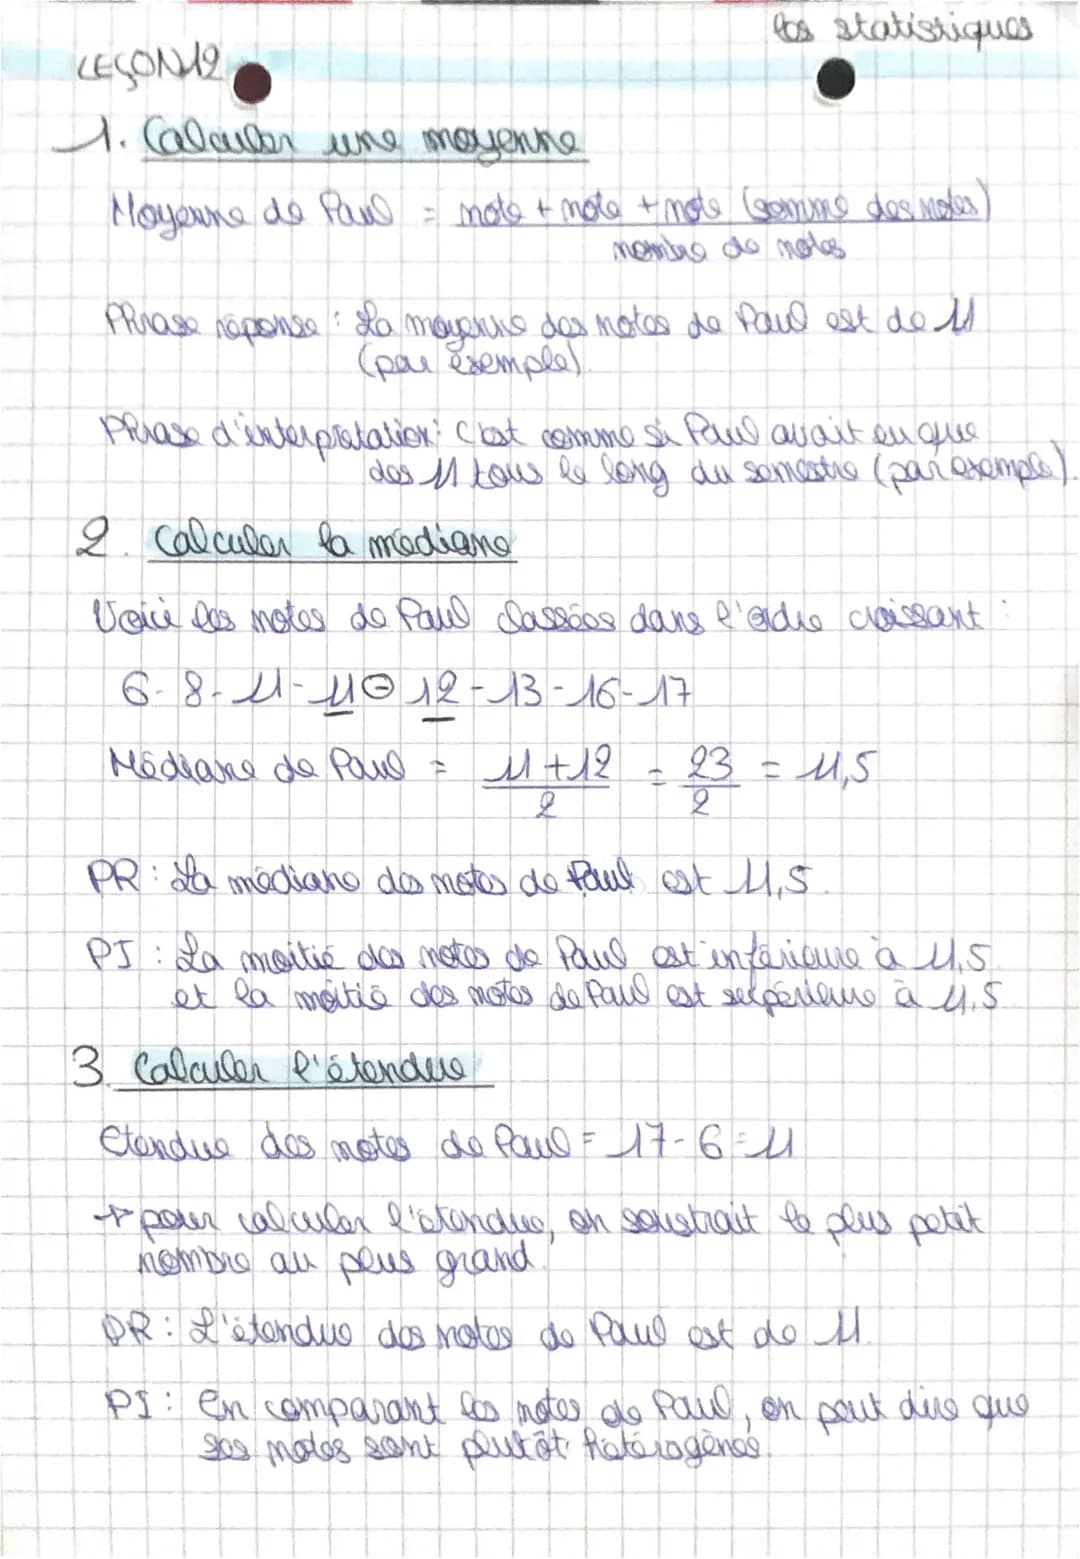 les statistiques
LEÇON 12
1. Calculer une moyenne
Moyenne de Paul = note + note + note (somme des notes)
nombre de notes
Phrase réponse : La moyenne des notes de Paul est de 11
(par exemple).
Phrase d'interprétation : C'est comme si Paul avait eu que
des 11 tous le long du semestre (par exemple).
2. Calculer la médiane
Voici les notes de Paul classées dans l'ordre croissant :
6-8-11-11-12-13-16-17
Médiane de Paul = 11+12 = 23 = 11,5
2 2
PR : La médiane des notes de Paul est 11,5.
PI : La moitié des notes de Paul est inférieure à 11,5.
et la moitié des notes de Paul est supérieure à 11,5
3. Calculer l'étendue
Etendue des notes de Paul = 17-6=11
→ pour calculer l'étendue, on soustrait le plus petit
nombre au plus grand.
PR : L'étendue des notes de Paul est de 11.
PI : En comparant les notes de Paul, on peut dire que
ses notes sont plutôt hétérogènes.